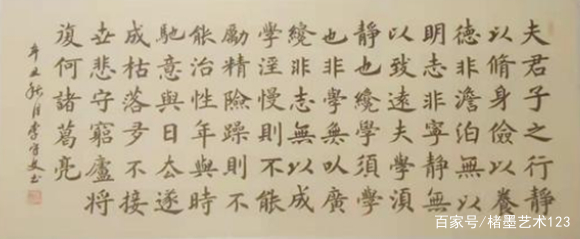 夫君子之行靜
以脩身儉以養
德非澹泊無以
明志非寧靜無
以致遠夫學須
靜也纔學須學
也非學無以廣
纔非志無以成
學淫慢則不能
勵精險躁則不
能治性年與時
馳意與日去遂
成枯落多不接
世悲守窮廬將
復何諸葛亮
辛丑秋月李
百家号/楮墨艺术123